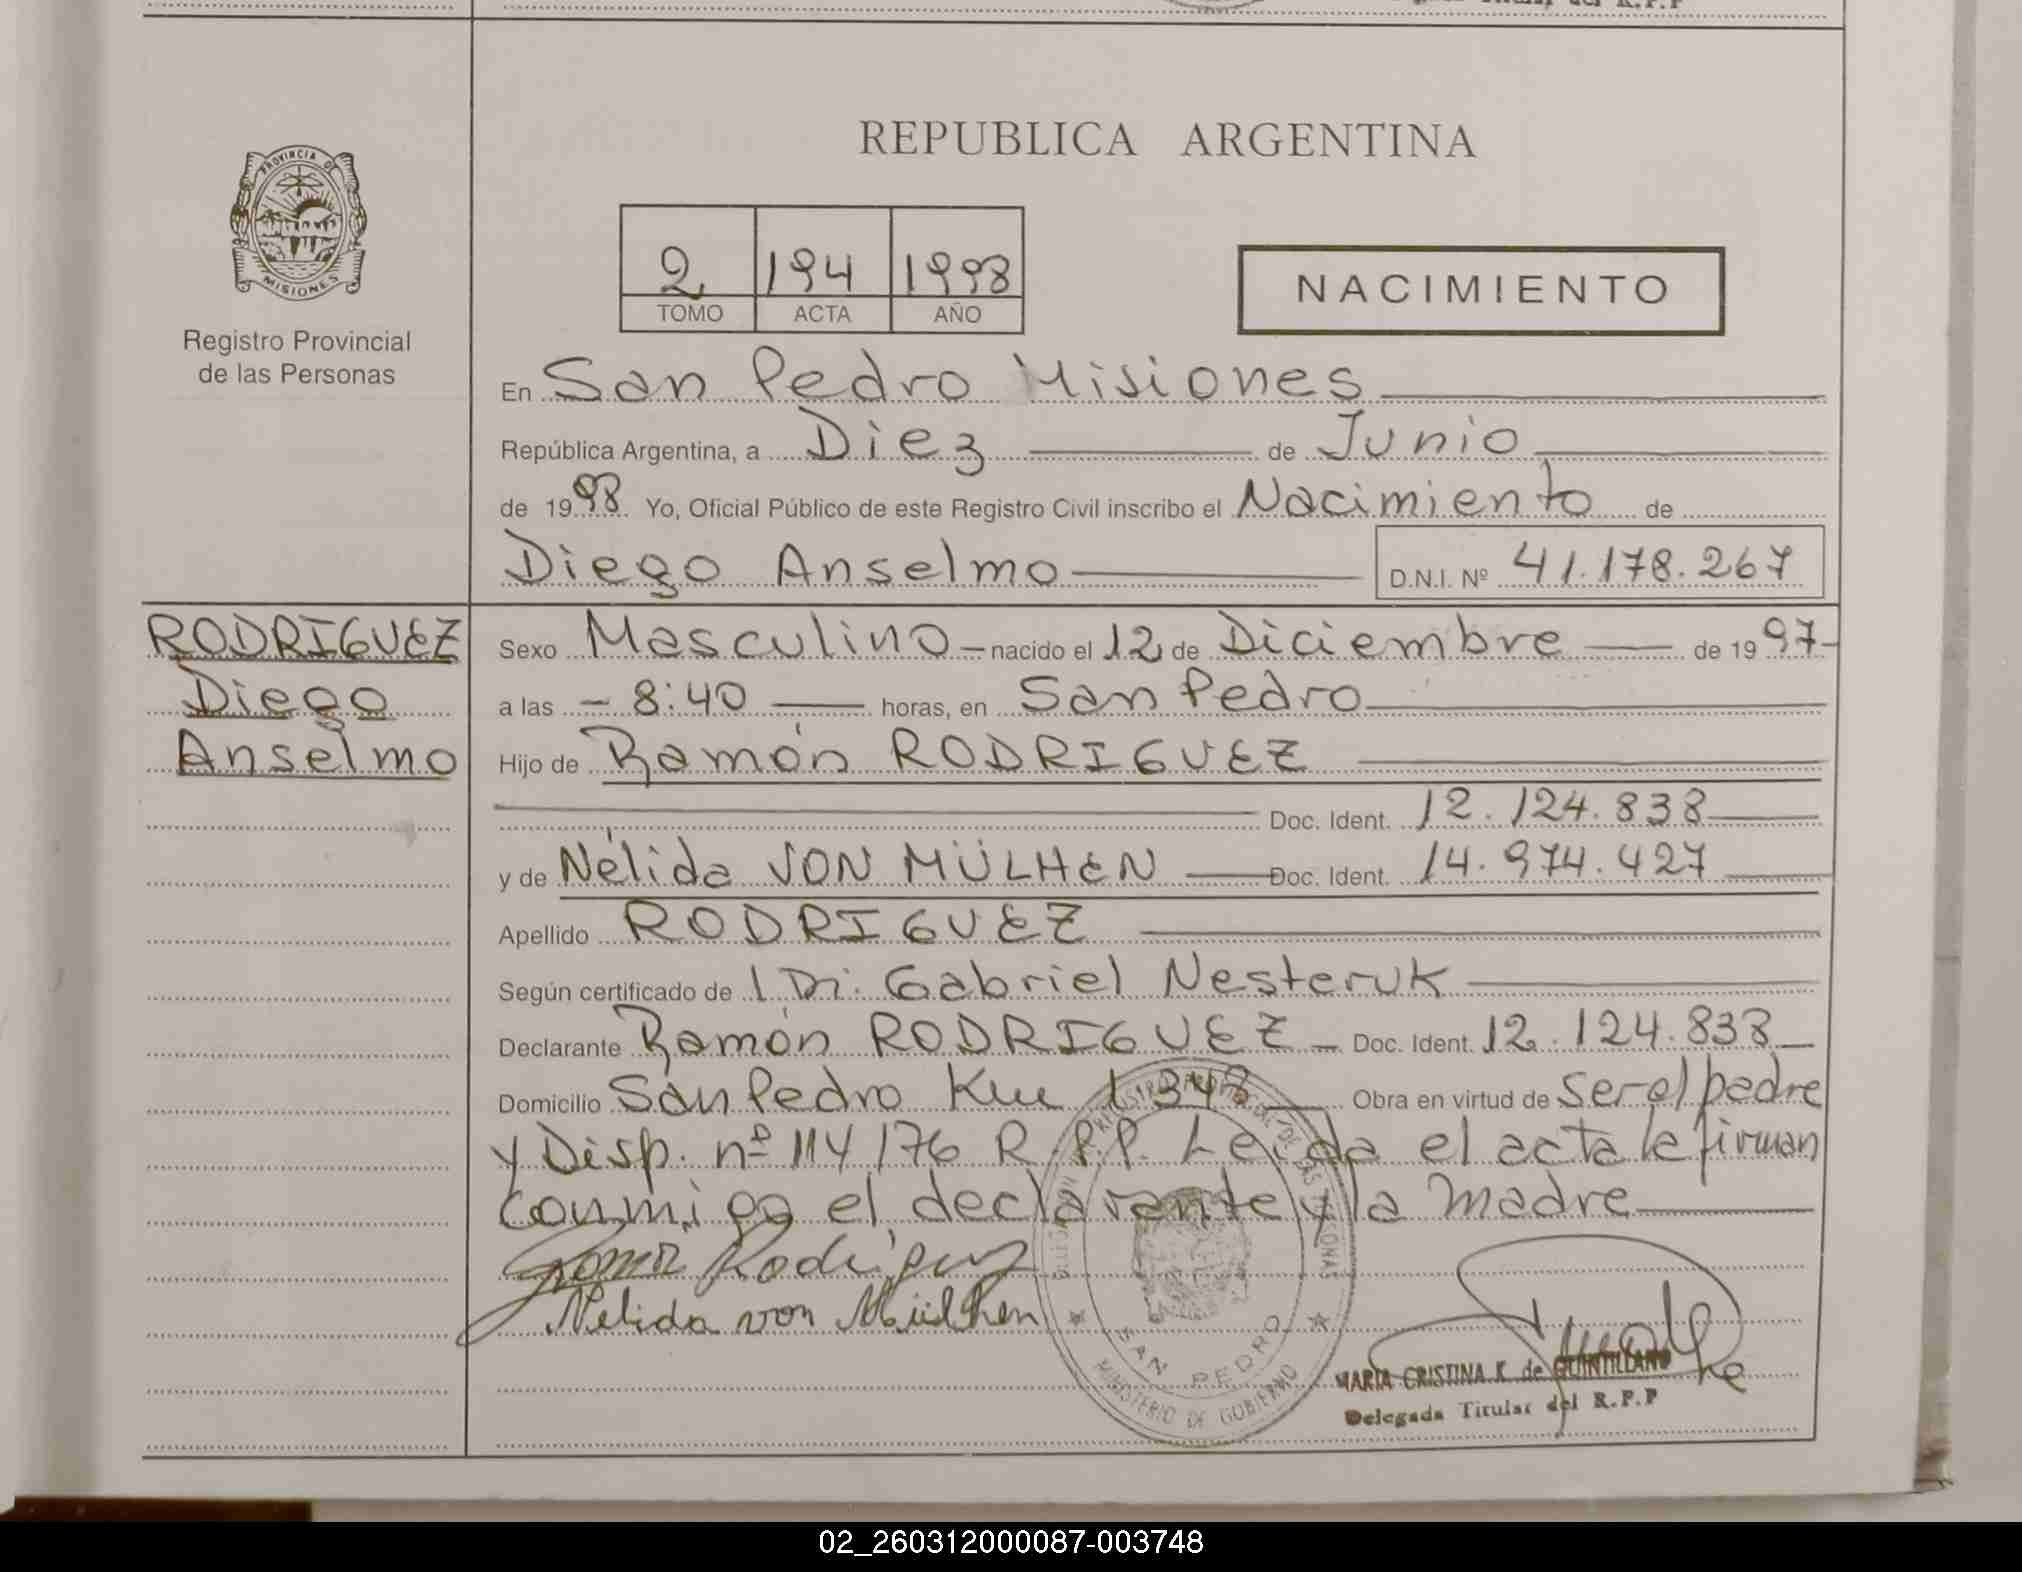 REPUBLICA ARGENTINA
PROVINCIA DE MISIONES
Registro Provincial
de las Personas
2 194 1998
TOMO ACTA AÑO
NACIMIENTO
En San Pedro Misiones
República Argentina, a Diez de Junio
de 1998 Yo, Oficial Público de este Registro Civil inscribo el Nacimiento de
Diego Anselmo D.N.I. Nº 41.178.267
RODRIGUEZ
Diego
Anselmo
Sexo Masculino - nacido el 12 de Diciembre de 1997-
a las - 8:40 horas, en San Pedro
Hijo de Ramón RODRIGUEZ
Doc. Ident. 12.124.838
y de Nélida VON MÜLHEN Doc. Ident. 14.974.427
Apellido RODRIGUEZ
Según certificado de Gabriel Nesteruk
Declarante Ramón RODRIGUEZ - Doc. Ident. 12.124.838
Domicilio San Pedro Km 1348 Obra en virtud de ser el padre
y Disp. nº 114/76 R.P.P. Leída el acta la firman
conmigo el declarante y la madre
Rodriguez
Nelida von Mülhen
SAN PEDRO
MINISTERIO DE GOBIERNO
MARIA CRISTINA K. de QUINTILLANO
Delegada Titular del R.P.P
02_260312000087-003748